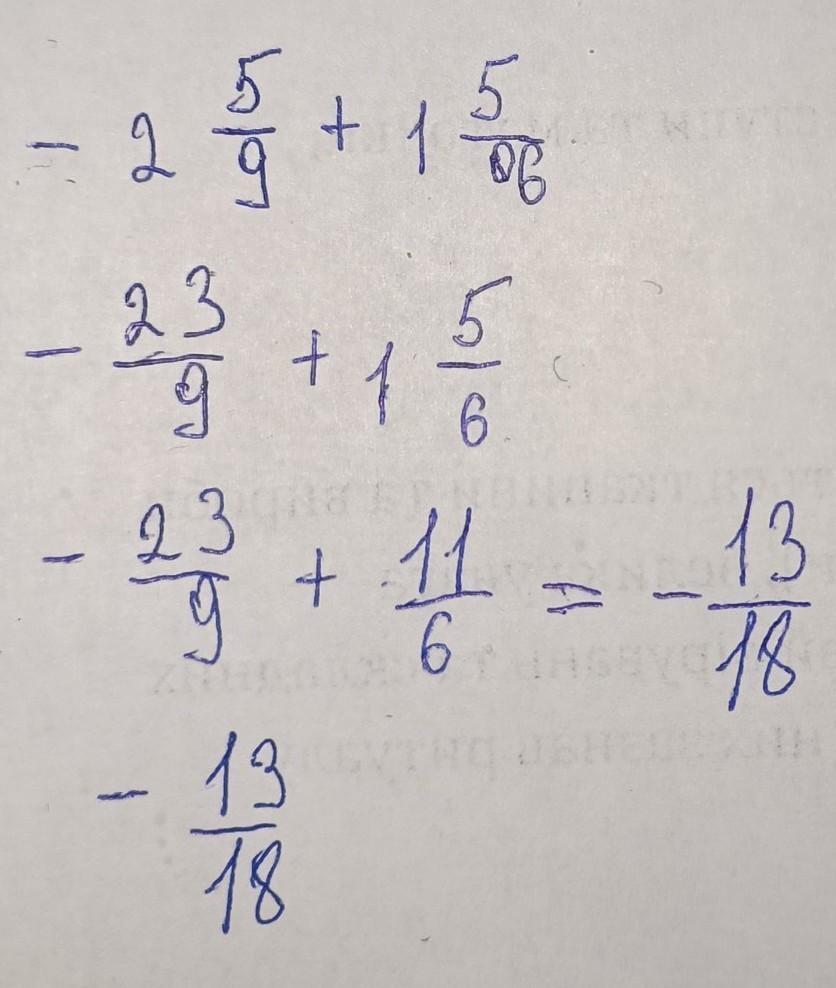 - 2 5/9 + 1 5/6
- 23/9 + 1 5/6
- 23/9 + 11/6 = - 13/18
- 13/18